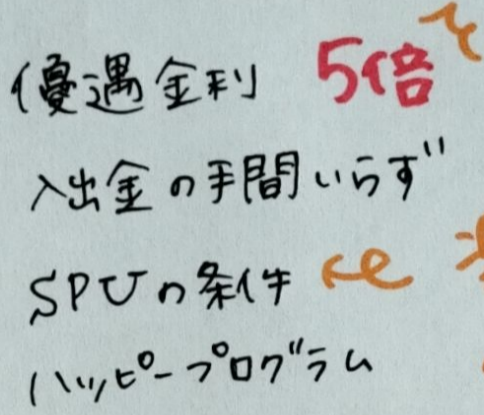 優遇金利 5倍
入出金の手間いらず
SPUの条件
ハッピープログラム